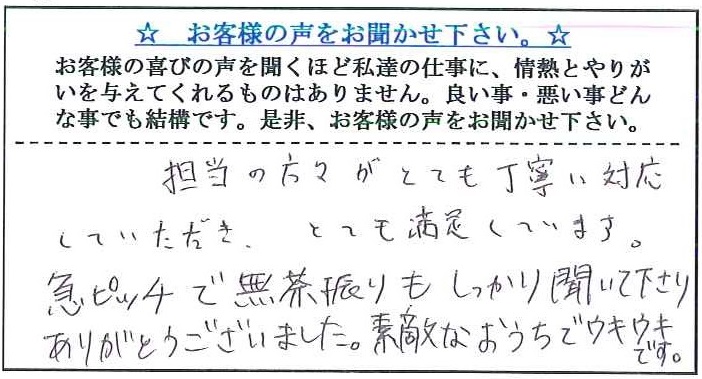 ☆ お客様の声をお聞かせ下さい。☆
お客様の喜びの声を聞くほど私達の仕事に、情熱とやりが
いを与えてくれるものはありません。良い事・悪い事どん
な事でも結構です。是非、お客様の声をお聞かせ下さい。
担当の方々がとても丁寧に対応
していただき、とても満足しています。
急ピッチで無茶振りもしっかり聞いて下さり
ありがとうございました。素敵なおうちでウキウキ
です。